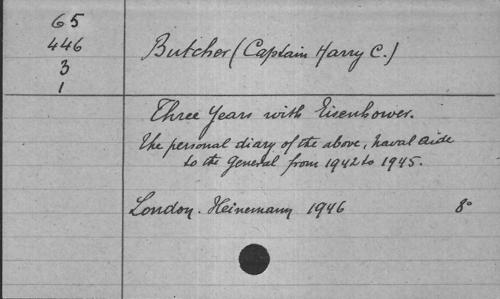 65
446
3
1
Butcher (Captain Harry C.)
Three Years with Eisenhower.
The personal diary of the above, Naval Aide
to the General from 1942 to 1945.
London. Heinemann 1946 8°